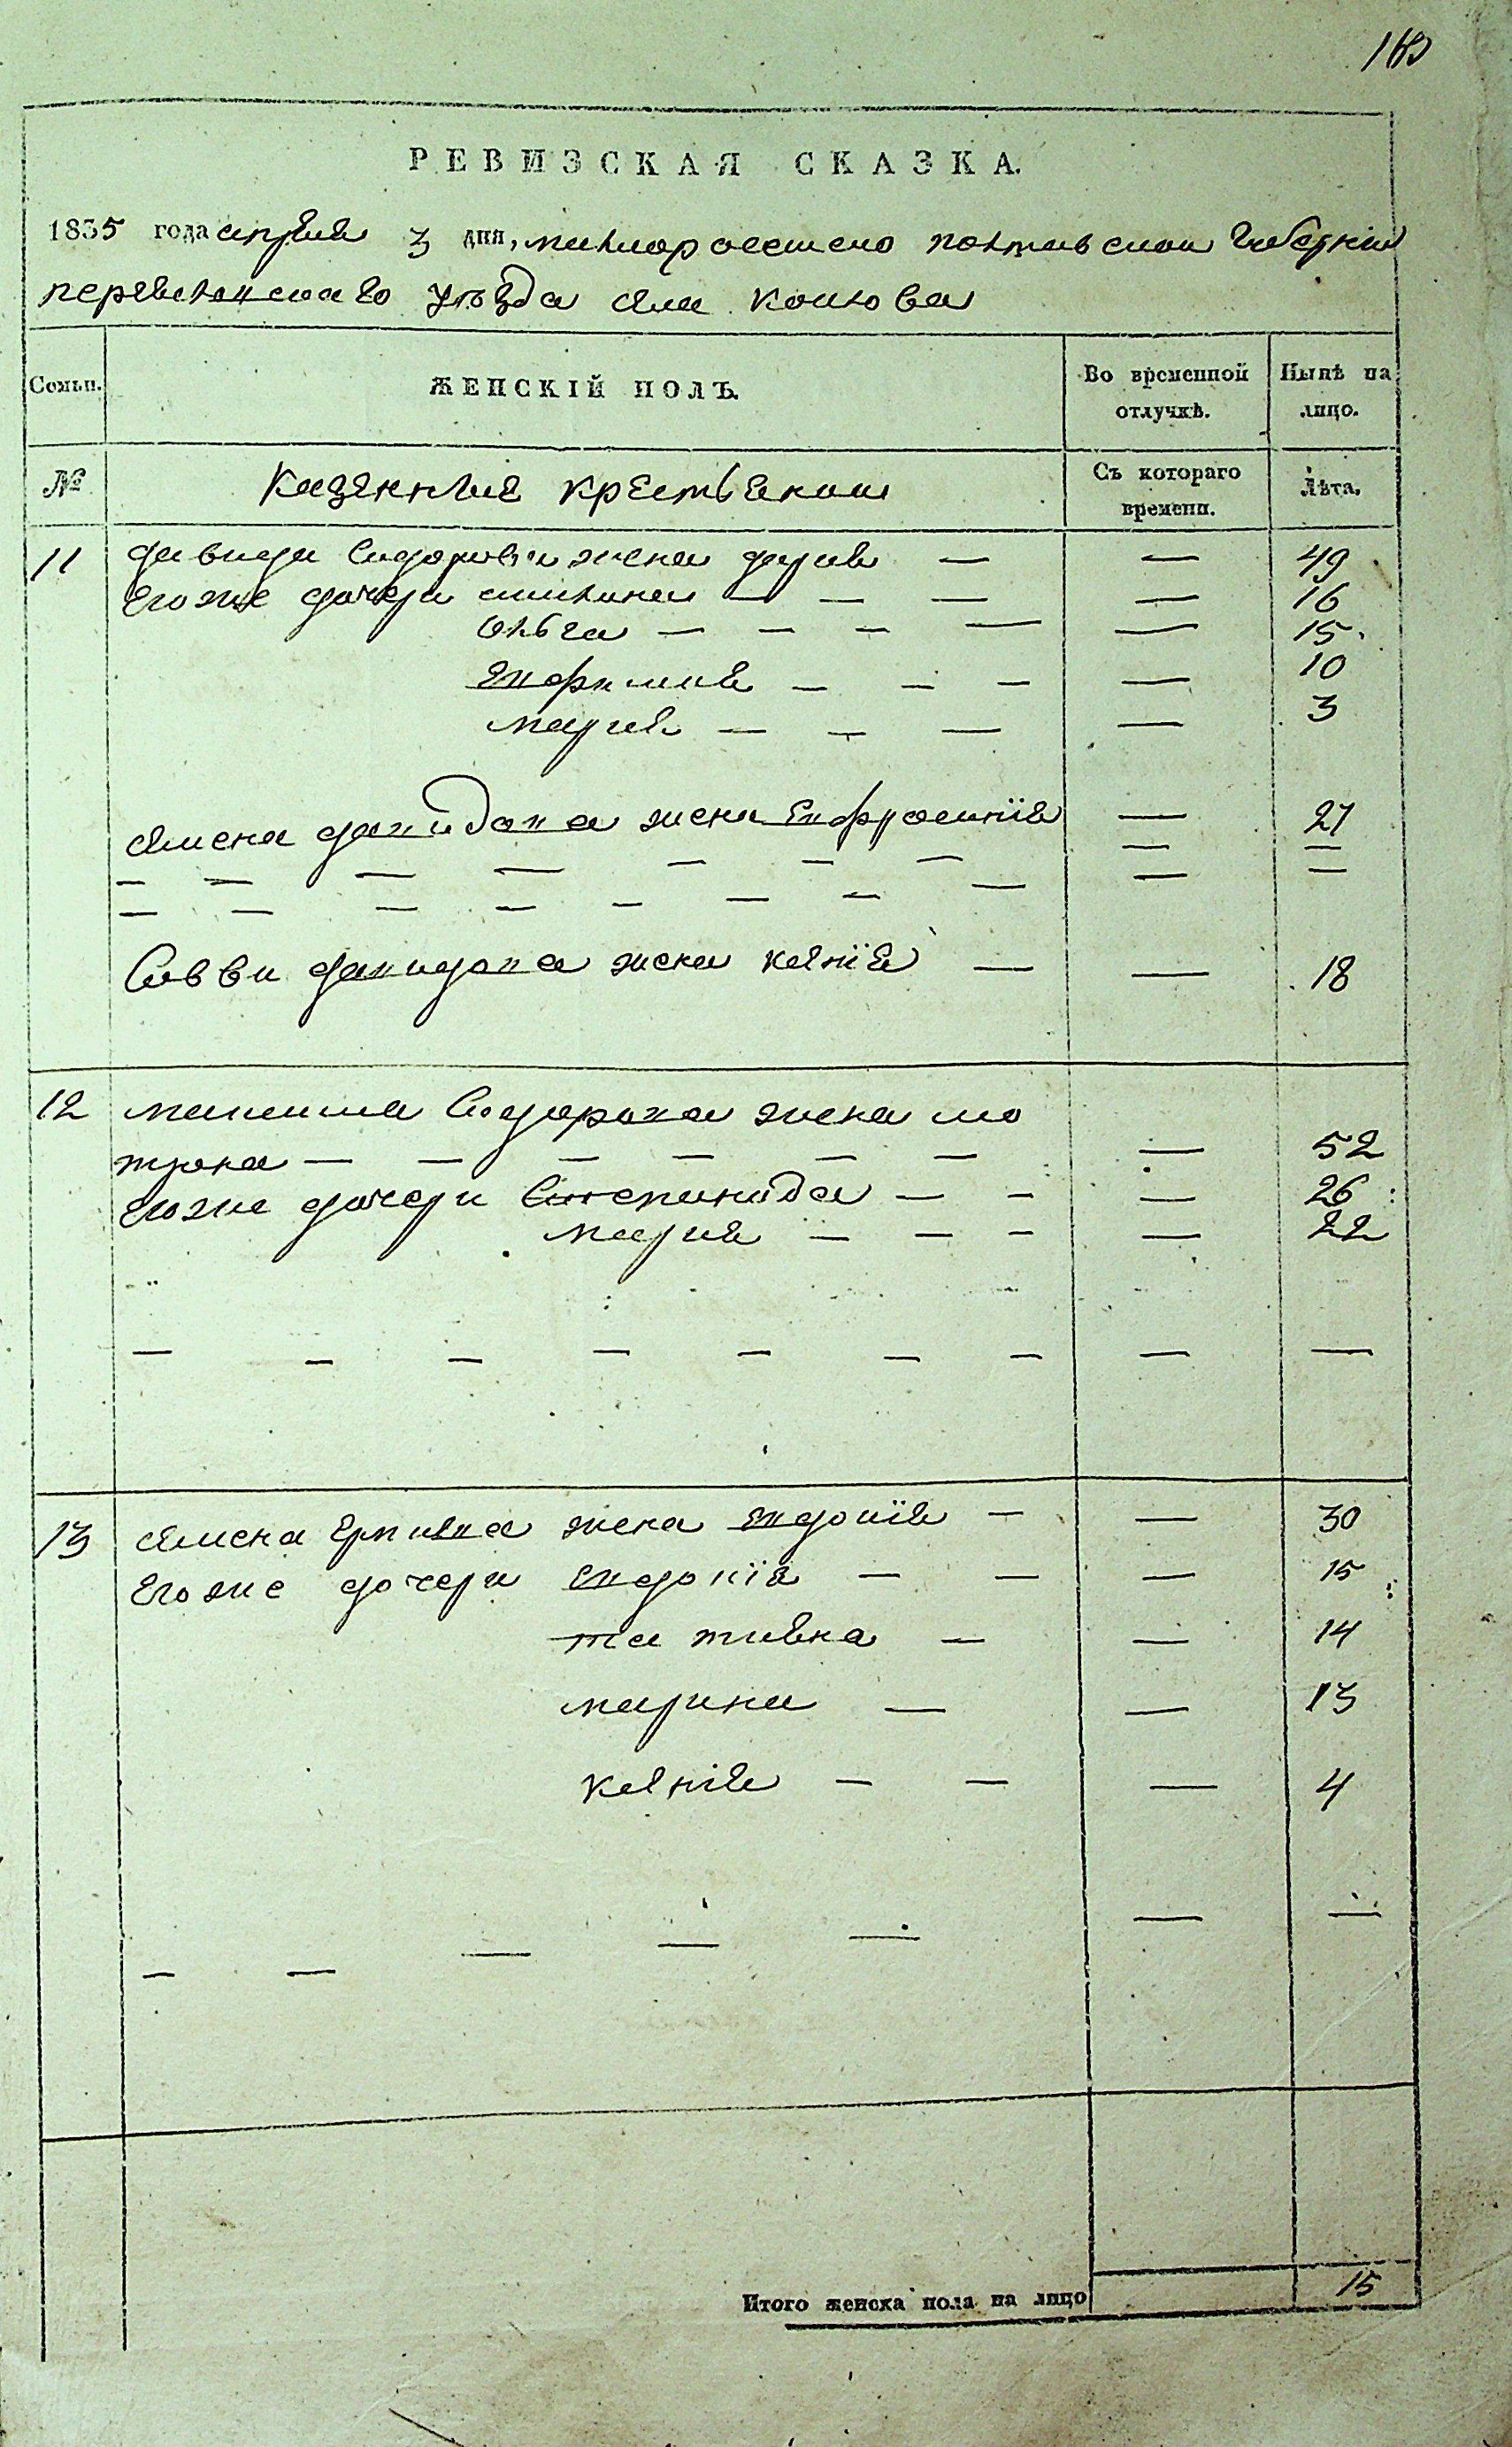 РЕВИЗСКАЯ СКАЗКА.
1835 года апреля 3 дня, малороссийско полтавской губернии
переяславскаго уезда села
Семьи. ЖЕНСКІЙ ПОЛЪ. Во временной отлучкѣ. Нынѣ на лицо.
№ казенние крестьяни Съ котораго времени. Лѣта.
11 давида сидорова жена дария — — 49
Егоже дочери — — — — 16
Ольга — — — — — 15
Ефимия — — — — 10
мария — — — — 3
семена давидова жена Ефросинія — 27
— — — — — — — — —
— — — — — — — — — —
Савви давидова жена ксенія — — 18
12 максима сидорова жена мо
трона — — — — — — — 52
Егоже дочери Степанида — — — 26
мария — — — — 22
— — — — — — — — —
13 семена жена евдокія — — 30
Егоже дочери евдокія — — — 15
татияна — — 14
марина — — 13
ксенія — — — 4
— — — — — — —
Итого женска пола на лицо 15